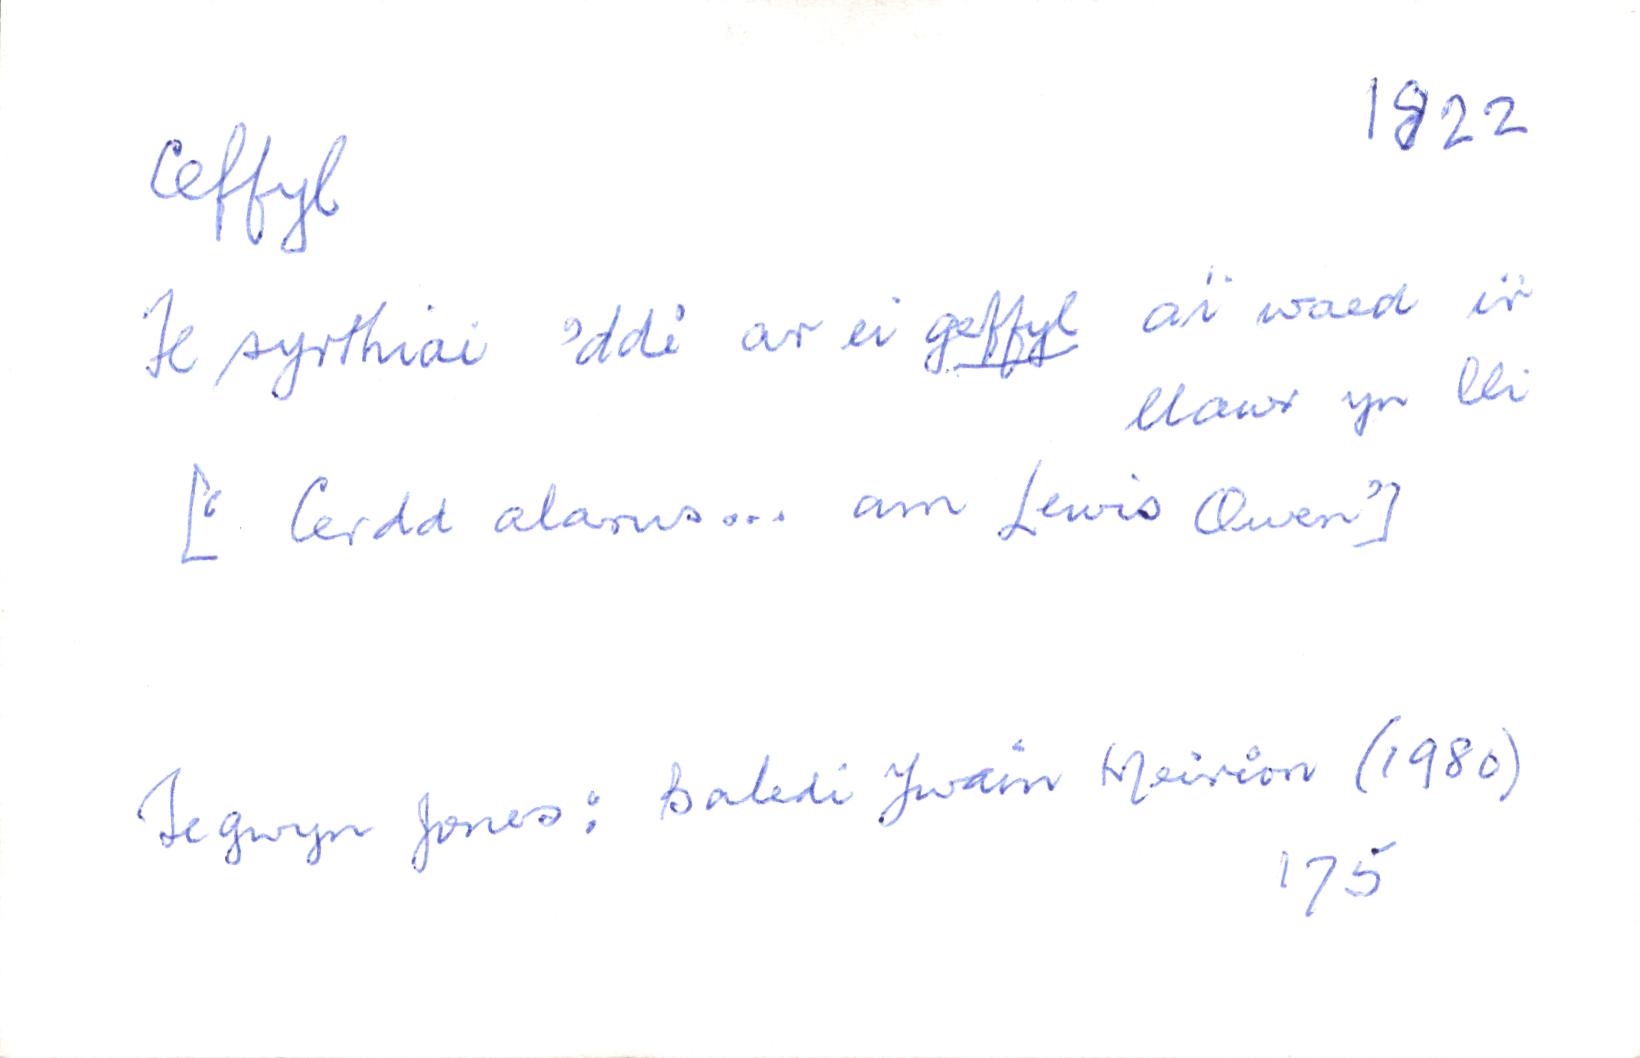 1822
Ceffyl
Fe syrthiai 'ddi ar ei geffyl a'i waed i'r
llawr yn lli
[" Cerdd alarus... am Lewis Owen"]
Tegwyn Jones: Baledi Ywain Meirion (1980)
175